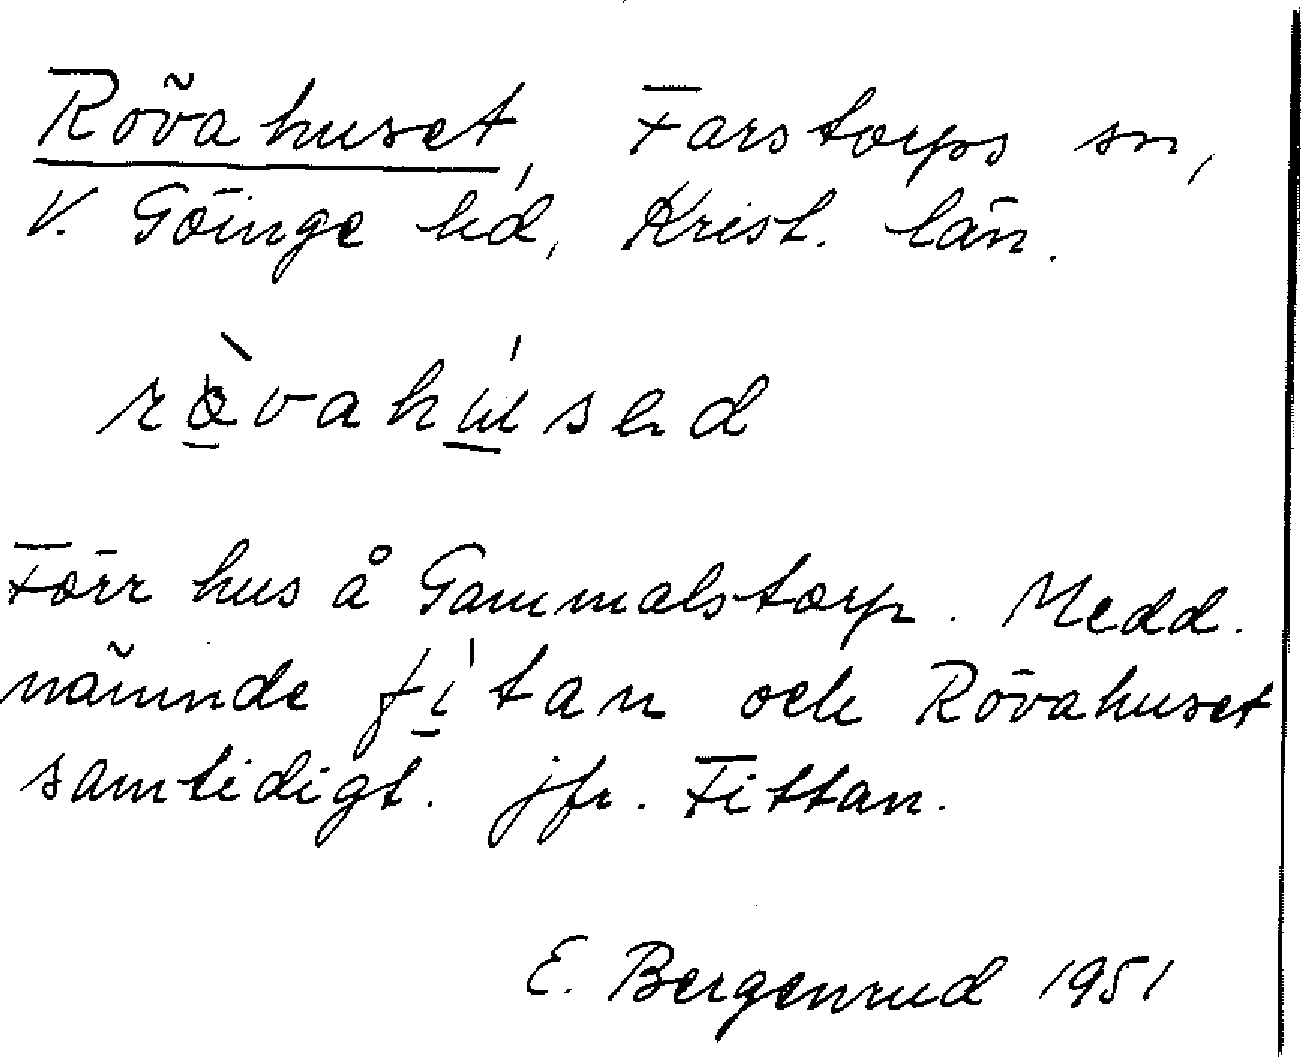 Rövahuset, Farstorps sn,
V. Göinge hd, Krist. län.
rö̀vahúsed
Förr hus å Gammalstorp. Medd.
nämnde fítan och Rövahuset
samtidigt. jfr. Fittan.
E. Bergenrud 1951